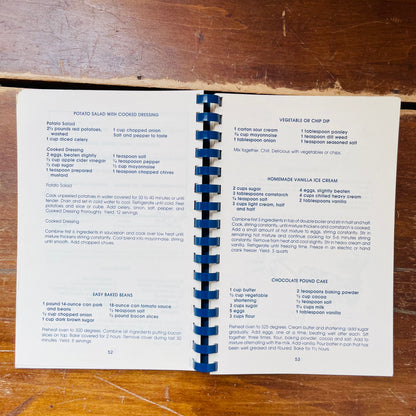 POTATO SALAD WITH COOKED DRESSING
Potato Salad
2½ pounds red potatoes,
washed
1 cup sliced celery
½ cup chopped onion
Salt and pepper to taste
Cooked Dressing
2 eggs, beaten slightly
½ cup apple cider vinegar
½ cup sugar
1 teaspoon prepared
mustard
1 teaspoon salt
¼ teaspoon pepper
½ cup mayonnaise
1 teaspoon chopped chives
Potato Salad
Cook unpeeled potatoes in water covered for 30 to 40 minutes or until
tender. Drain and set in cold water to cool. Refrigerate until cold. Peel
potatoes and slice or cube. Add celery, onion, salt, pepper, and
Cooked Dressing thoroughly. Yield: 12 servings
Cooked Dressing
Combine first 6 ingredients in saucepan and cook over low heat until
mixture thickens stirring constantly. Cool blend into mayonnaise, stirring
until smooth. Add chopped chives.
EASY BAKED BEANS
1 pound 14-ounce can pork
and beans
½ cup chopped onion
1 cup dark brown sugar
15-ounce can tomato sauce
1 teaspoon salt
½ pound bacon slices
Preheat oven to 325 degrees. Combine all ingredients putting bacon
slices on top. Bake covered for 2 hours. Remove cover during last 30
minutes. Yield: 8 servings
52
VEGETABLE OR CHIP DIP
1 carton sour cream
½ cup mayonnaise
1 tablespoon onion
1 tablespoon parsley
1 teaspoon dill weed
1 teaspoon seasoned salt
Mix together. Chill. Delicious with vegetables or chips.
HOMEMADE VANILLA ICE CREAM
2 cups sugar
2 tablespoons cornstarch
¼ teaspoon salt
3 cups light cream, half
and half
4 eggs, slightly beaten
4 cups chilled heavy cream
2 tablespoons vanilla
Combine first 3 ingredients in top of double boiler and stir in half and half.
Cook, stirring constantly, until mixture thickens and cornstarch is cooked.
Add a small amount of hot mixture to eggs, stirring constantly. Stir in
remaining hot mixture and continue cooking for 5-6 minutes stirring
constantly. Remove from heat and cool slightly. Stir in heavy cream and
vanilla. Refrigerate until freezing time. Freeze in an electric or hand
crank freezer. Yield: 3 quarts
CHOCOLATE POUND CAKE
1 cup butter
½ cup vegetable
shortening
3 cups sugar
5 eggs
3 cups flour
½ teaspoons baking powder
½ cup cocoa
½ teaspoon salt
1¼ cups milk
1 tablespoon vanilla
Preheat oven to 325 degrees. Cream butter and shortening, add sugar
gradually. Add eggs, one at a time, beating well after each. Sift
together three times, flour, baking powder, cocoa and salt. Add to
mixture alternating with the milk. Add vanilla. Pour batter in pan that has
been well greased and floured. Bake for 1½ hours.
53